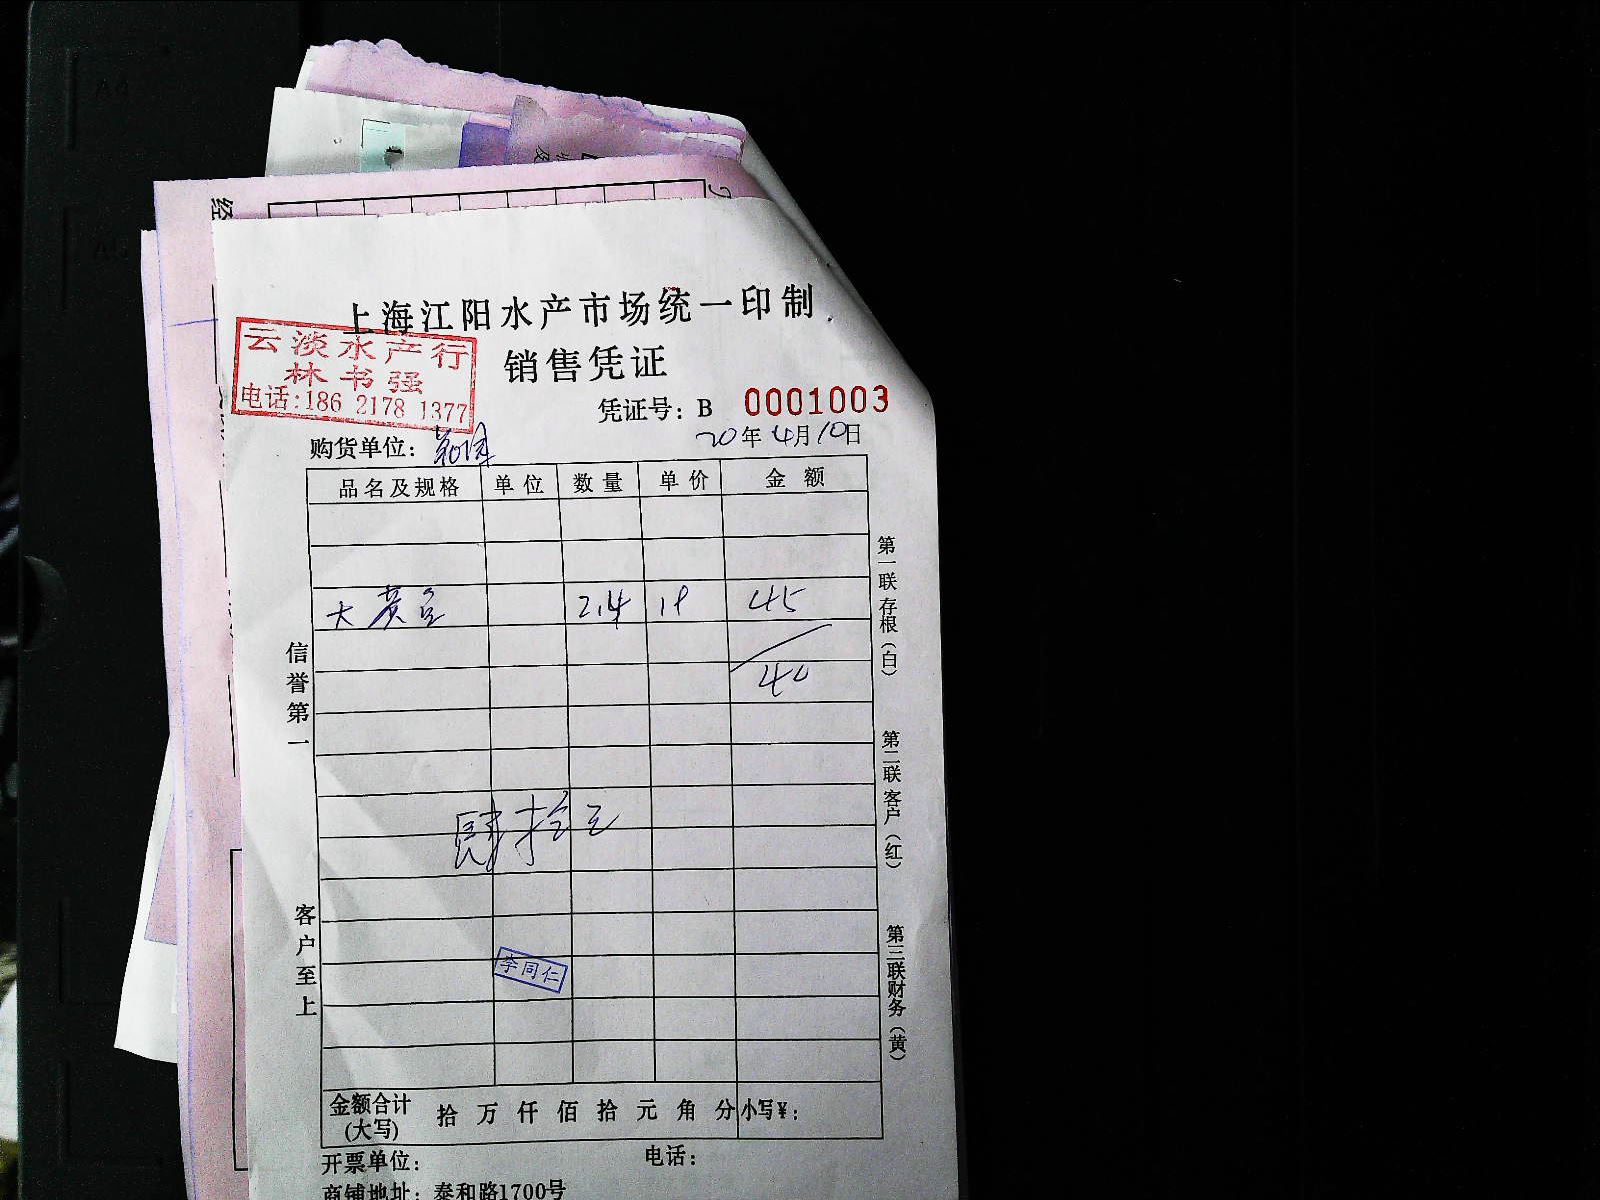 上海江阳水产市场统一印制
云淡水产行
林书强
电话:186 2178 1377
销售凭证
凭证号: B 0001003
购货单位:
20年4月10日
品名及规格 单位 数量 单价 金额
大黄 2.4 19 45
40
肆拾
李同仁
信誉第一
客户至上
第一联存根(白)
第二联客户(红)
第三联财务(黄)
金额合计(大写) 拾万仟佰拾元角分 小写¥:
开票单位: 电话:
商铺地址: 泰和路1700号